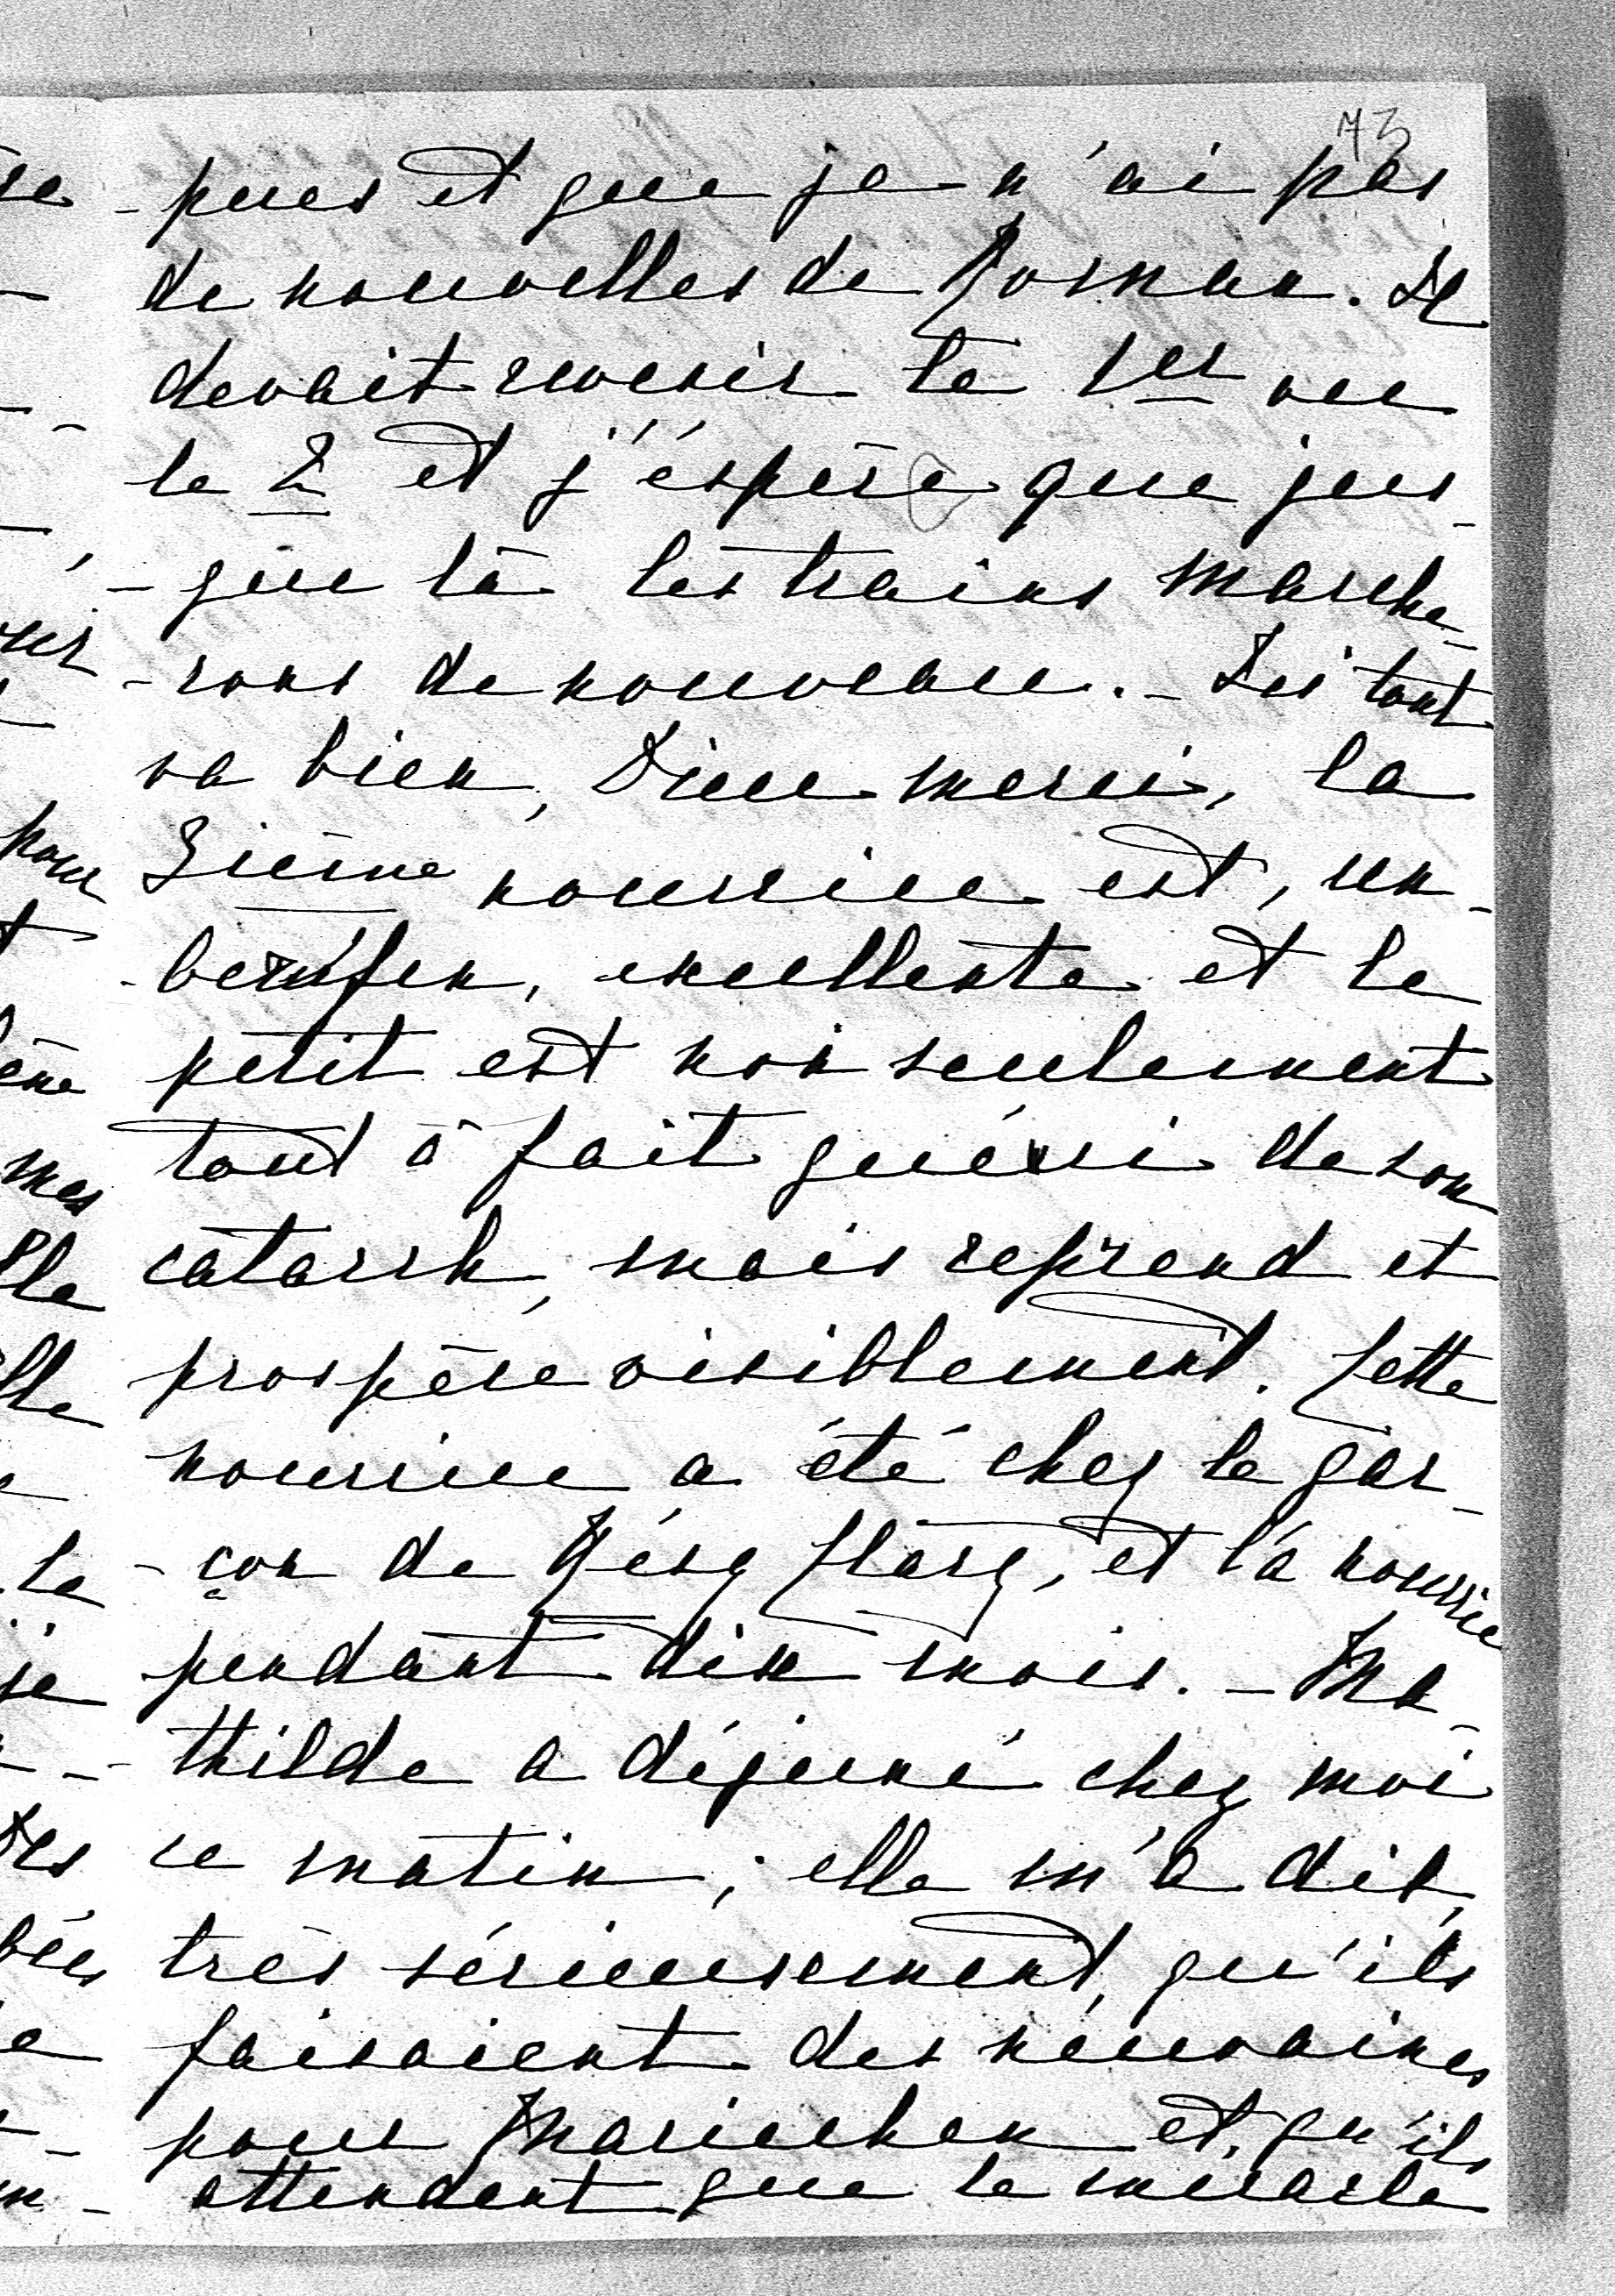 73
-pues et que je n'ai pas
de nouvelles de Roman. Il
devait revenir le 1er ou
le 2 et j'éspère que jus-
-que là les trains marche-
-rons de nouveau. - Ici tout
va bien, Dieu merci, la
3ième nourrice est, un-
-berufen, excellente et le
petit est non seulement
tout à fait guéri de son
catarrh, mais reprend et
prospère visiblement. Cette
nourrice a été chez le gar-
-çon de et l'a nourrie
pendant dix mois. - Ma-
-thilde a déjeuné chez moi
ce matin; elle m'a dit,
très sérieusement, qu'ils
faisaient des neuvaines
pour Mariechen et qu'ils
attendent que le miracle